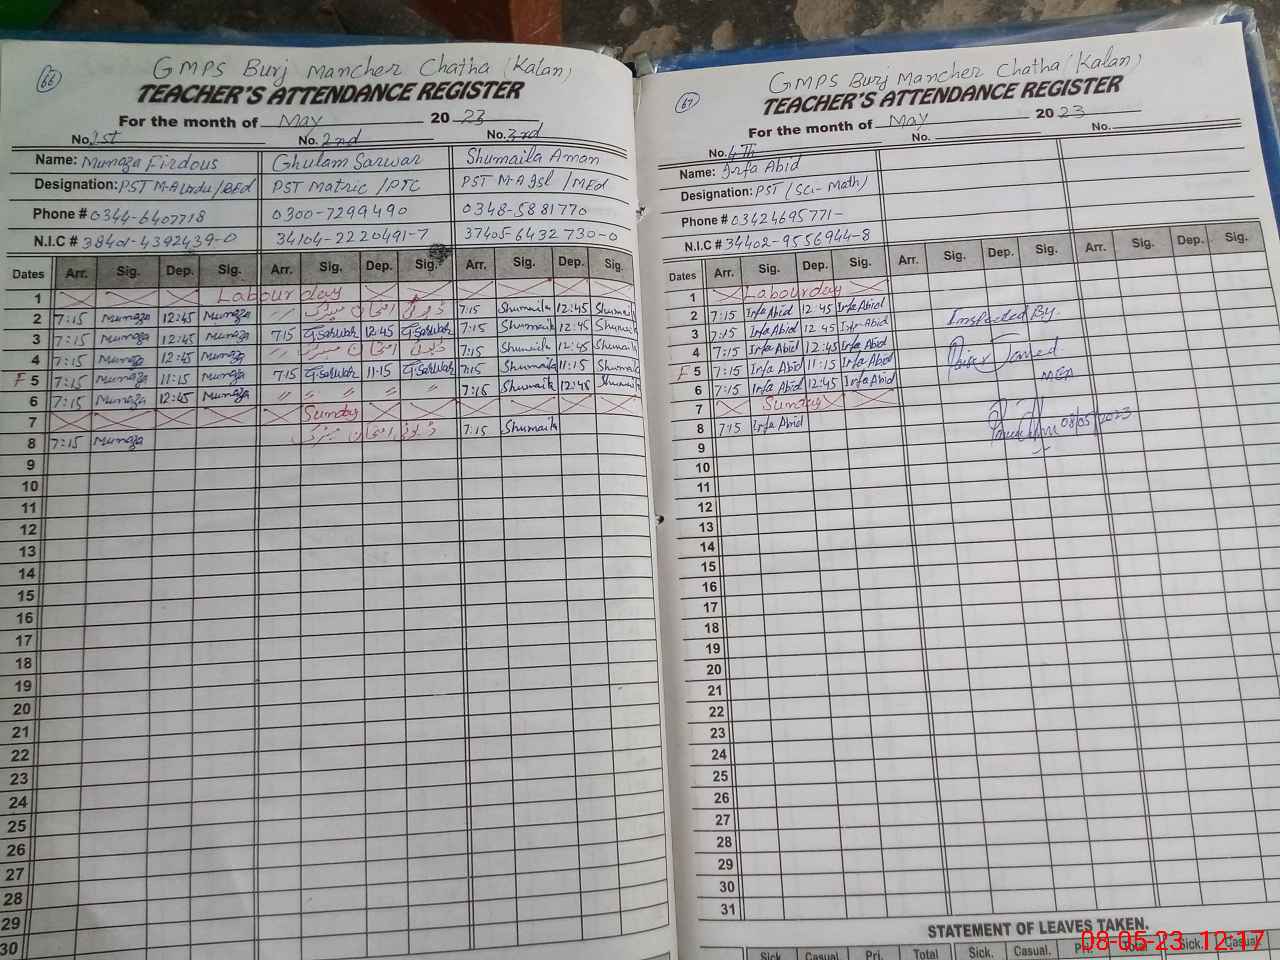 66
GMPS Burj Mancher Chatha (Kalan)
TEACHER'S ATTENDANCE REGISTER
For the month of May 2023
No. 1st No. 2nd No. 3rd
Name: Munaza Firdous Ghulam Sarwar Shumaila Aman
Designation: PST M-A Urdu/BEd PST Matric/PTC PST M-A Isl/MEd
Phone # 0344-6407718 0300-7299490 0348-5881770
N.I.C # 38401-4392439-0 34104-2220491-7 37405-6432730-0
Dates Arr. Sig. Dep. Sig. Arr. Sig. Dep. Sig. Arr. Sig. Dep. Sig.
1 Labour day
2 7:15 Munaza 12:45 Munaza 7:15 Shumaila 12:45 Shumaila
3 7:15 Munaza 12:45 Munaza 7:15 G.Sarwar 12:45 G.Sarwar 7:15 Shumaila 12:45 Shumaila
4 7:15 Munaza 12:45 Munaza 7:15 Shumaila 12:45 Shumaila
F 5 7:15 Munaza 11:15 Munaza 7:15 G.Sarwar 11:15 G.Sarwar 7:15 Shumaila 11:15 Shumaila
6 7:15 Munaza 12:45 Munaza " " " " 7:15 Shumaila 12:45 Shumaila
7 Sunday
8 7:15 Munaza 7:15 Shumaila
9
10
11
12
13
14
15
16
17
18
19
20
21
22
23
24
25
26
27
28
29
30
67
GMPS Burj Mancher Chatha (Kalan)
TEACHER'S ATTENDANCE REGISTER
For the month of May 2023
No. 4Th No. No.
Name: Irfa Abid
Designation: PST (Sci-Math)
Phone # 03424695771-
N.I.C # 34402-9556944-8
Dates Arr. Sig. Dep. Sig. Arr. Sig. Dep. Sig. Arr. Sig. Dep. Sig.
1 Labourday
2 7:15 Irfa Abid 12:45 Irfa Abid
3 7:15 Irfa Abid 12:45 Irfa Abid
4 7:15 Irfa Abid 12:45 Irfa Abid
F 5 7:15 Irfa Abid 11:15 Irfa Abid
6 7:15 Irfa Abid 12:45 Irfa Abid
7 Sunday
8 7:15 Irfa Abid
Inspected By.
MEA
08/05/2023
9
10
11
12
13
14
15
16
17
18
19
20
21
22
23
24
25
26
27
28
29
30
31
STATEMENT OF LEAVES TAKEN.
Sick. Casual. Pri. Total Sick. Casual. Pri. Total Sick. Casual.
08-05-23 12:17